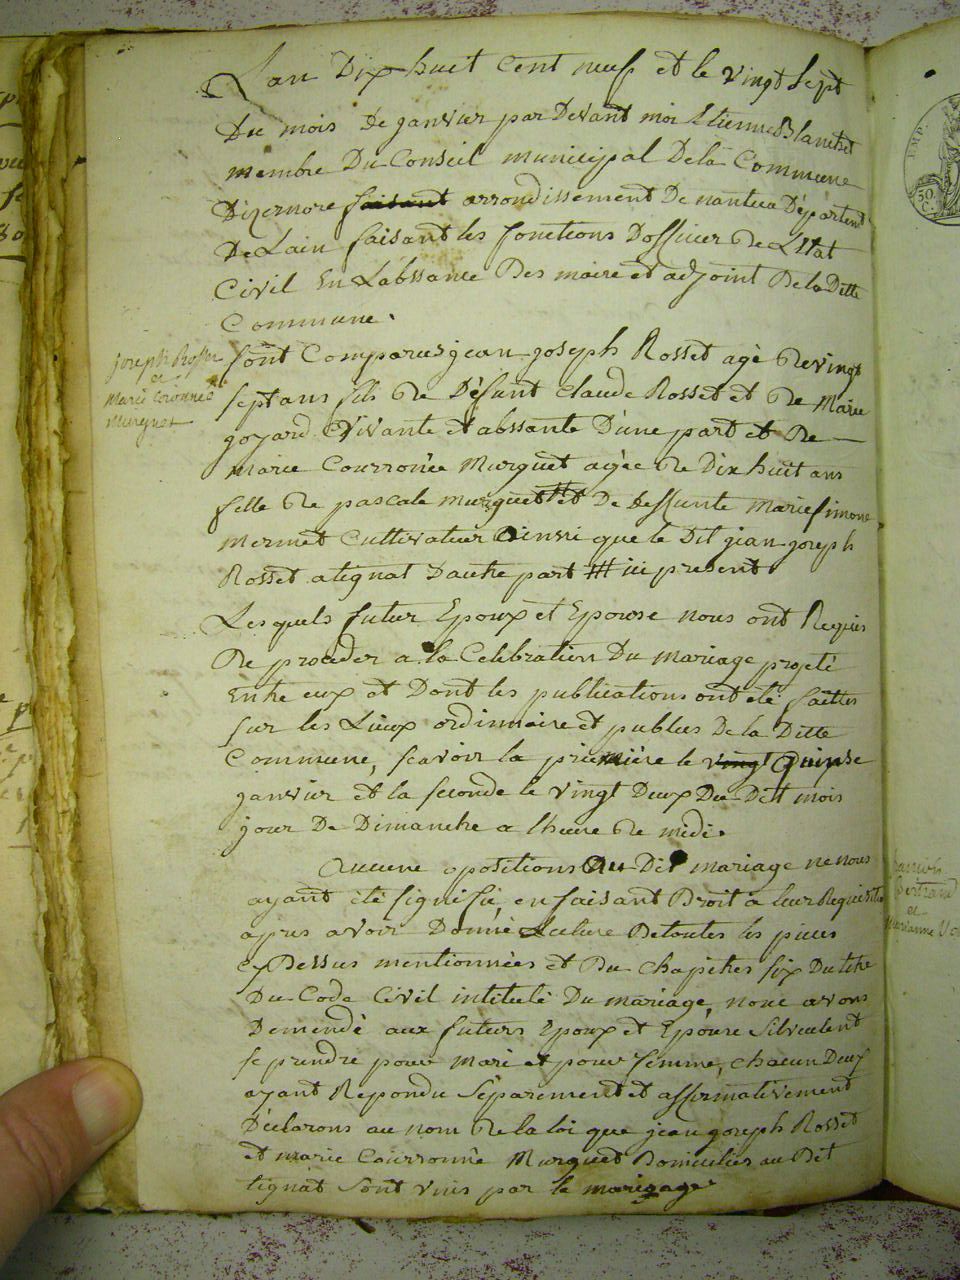 Lan Dix huit Cent neuf et le vingt sept
Du mois De janvier par Devant moi Etienne Blanchet
membre Du Conseil municipal De la Commune
Dizernore faisant arrondissement De nantua Départemt
De Lain faisant les fonctions Dofficier De LEtat
Civil En Labssance Des maire et adjoint De la Ditte
Commune.
Joseph Rosset
et
Marie Coronnée
Murguet
Sont Comparus jean joseph Rosset agé De vingt
sept ans fils De Défunt Claude Rosset et De Marie
goyard Vivante et abssante Dune part et De
Marie Courronée Murguet agée De Dix huit ans
fille De pascale murguet et De Deffunte Marie Simone
Mermet Cultivateur Ainsi que le Dit jean joseph
Rosset a tignat Dautre part ici present
Lesquels futur Epoux et Epouse nous ont Requis
De proceder a la Celebration Du mariage projeté
Entre eux et Dont les publications ont été faittes
sur les Lieux ordinnaire et publics De la Ditte
Commune, scavoir la premiére le vingt Quinse
janvier et la seconde le vingt Deux Du Dit mois
jour De Dimanche a lheure De midi.
Aucune opositions Au Dit mariage ne nous
ayant été signifié, en faisant Droit a leur Requisition
apres avoir Donné Lecture De toutes les pieces
cy Dessus mentionnées et Du chapitres six Du titre
Du Code Civil intitulé Du mariage, nous avons
Demendé aux futurs Epoux et Epouse Silveulent
se prendre pour Mari et pour femme, chacun Deux
ayant Repondu Séparement et affirmativement
Déclarons au nom De la loi que jean joseph Rosset
et marie Courronnée Murguet Domiciliés au Dit
tignat Sont Unis par le mariage
EMP.
50
C.
Bertrand
et